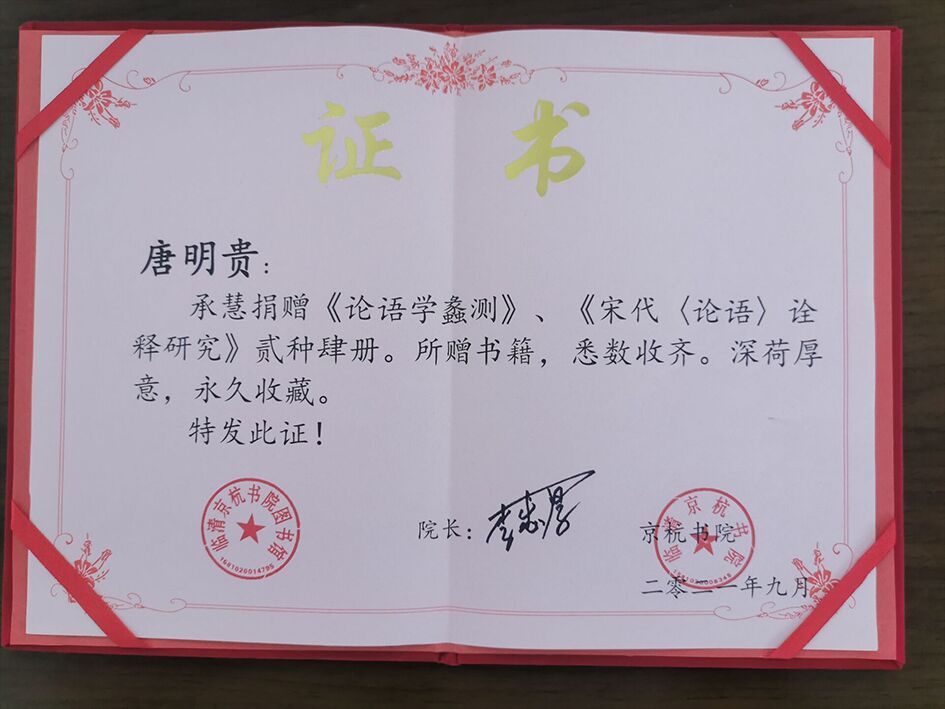 证书
唐明贵：
承慧捐赠《论语学蠡测》、《宋代〈论语〉诠
释研究》贰种肆册。所赠书籍，悉数收齐。深荷厚
意，永久收藏。
特发此证！
临清京杭书院图书馆
院长：
京杭书院
临清京杭书院
二零二一年九月